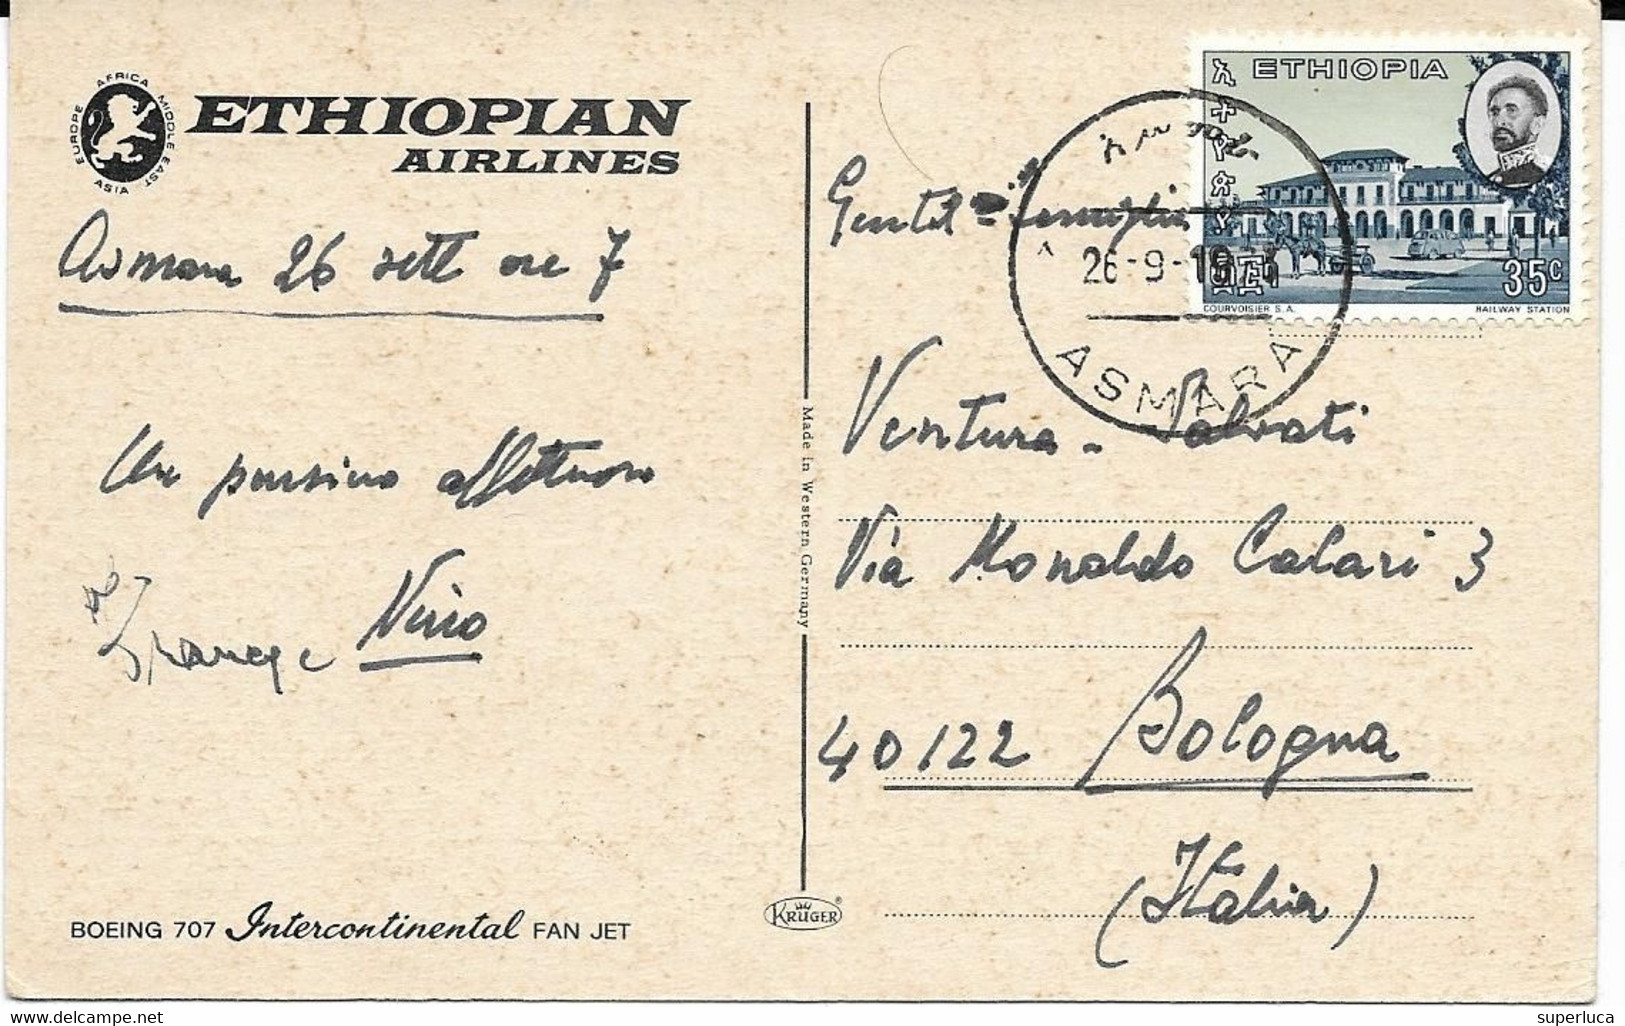 EUROPE AFRICA MIDDLE EAST ASIA
ETHIOPIAN
AIRLINES
Asmara 26 sett ore 7
Un pensiero affettuoso
Nino
BOEING 707 Intercontinental FAN JET
Made in Western Germany
KRÜGER
ETHIOPIA
ኢትዮጵያ
35c
COURVOISIER S.A.
RAILWAY STATION
አሥመራ
26-9-19
ASMARA
Gentil famiglia
Ventura - Salvati
Via Monaldo Calari 3
40122 Bologna
(Italia)
superluca